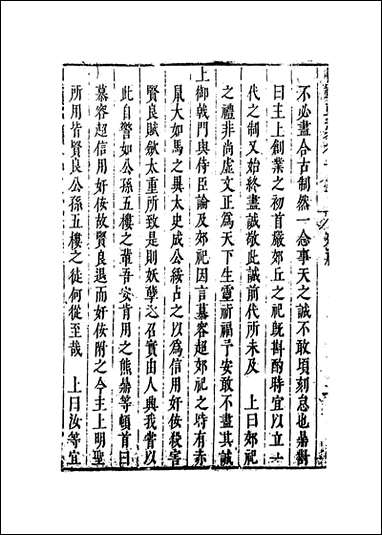 不必盡合古制然一念事天之誠不敢頃刻怠也鼎對
曰主上創業之初首嚴郊丘之祀既斟酌時宜以立一
代之制又始終盡誠敬此誠前代所未及　上曰郊祀
之禮非尚虛文正為天下生靈祈福予安敢不盡其誠
上御戟門與侍臣論及郊祀因言慕容超郊祀之時有赤
鼠大如馬之異太史成公綏占之以為信用奸佞殺害
賢良賦斂太重所致是則妖孽之召實由人興我嘗以
此自警如公孫五樓之輩吾安肯用之熊鼎等頓首曰
慕容超信用奸佞故賢良退而奸佞附之今主上明聖
所用皆賢良公孫五樓之徒何從至哉　上曰汝等宜